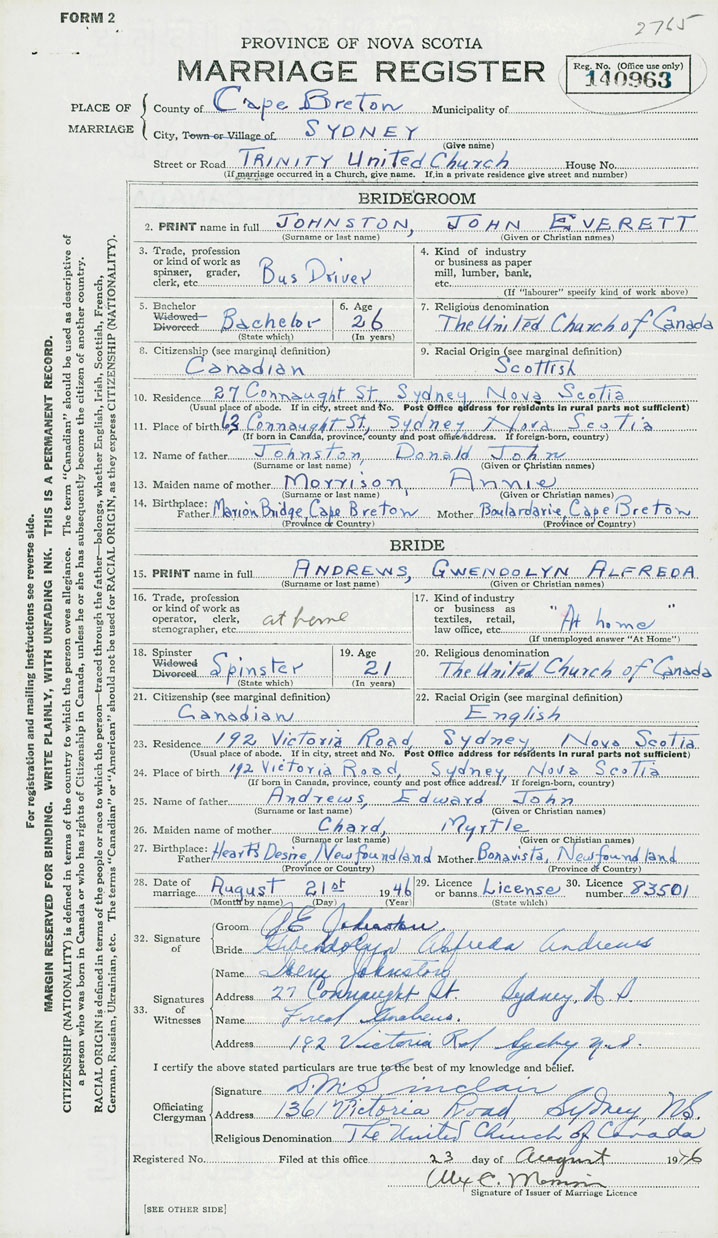 FORM 2
2765
PROVINCE OF NOVA SCOTIA
MARRIAGE REGISTER
Reg. No. (Office use only)
140963
PLACE OF MARRIAGE
County of Cape Breton Municipality of
City, Town or Village of SYDNEY
(Give name)
Street or Road TRINITY United Church House No.
(If marriage occurred in a Church, give name. If in a private residence give street and number)
BRIDEGROOM
2. PRINT name in full JOHNSTON, JOHN EVERETT
(Surname or last name) (Given or Christian names)
3. Trade, profession or kind of work as spinner, grader, clerk, etc. Bus Driver
4. Kind of industry or business as paper mill, lumber, bank, etc.
(If "labourer" specify kind of work above)
5. Bachelor Widowed Divorced Bachelor
(State which)
6. Age 26
(In years)
7. Religious denomination
The United Church of Canada
8. Citizenship (see marginal definition)
Canadian
9. Racial Origin (see marginal definition)
Scottish
10. Residence 27 Connaught St, Sydney, Nova Scotia
(Usual place of abode. If in city, street and No. Post Office address for residents in rural parts not sufficient)
11. Place of birth 63 Connaught St, Sydney Nova Scotia
(If born in Canada, province, county and post office address. If foreign-born, country)
12. Name of father Johnston, Donald John
(Surname or last name) (Given or Christian names)
13. Maiden name of mother Morrison, Annie
(Surname or last name) (Given or Christian names)
14. Birthplace: Father Marion Bridge, Cape Breton Mother Boulardarie, Cape Breton
(Province or Country) (Province or Country)
BRIDE
15. PRINT name in full ANDREWS, GWENDOLYN ALFREDA
(Surname or last name) (Given or Christian names)
16. Trade, profession or kind of work as operator, clerk, stenographer, etc. at home
17. Kind of industry or business as textiles, retail, law office, etc. "At home"
(If unemployed answer "At Home")
18. Spinster Widowed Divorced Spinster
(State which)
19. Age 21
(In years)
20. Religious denomination
The United Church of Canada
21. Citizenship (see marginal definition)
Canadian
22. Racial Origin (see marginal definition)
English
23. Residence 192 Victoria Road, Sydney, Nova Scotia
(Usual place of abode. If in city, street and No. Post Office address for residents in rural parts not sufficient)
24. Place of birth 192 Victoria Road, Sydney, Nova Scotia
(If born in Canada, province, county and post office address. If foreign-born, country)
25. Name of father Andrews, Edward John
(Surname or last name) (Given or Christian names)
26. Maiden name of mother Chard, Myrtle
(Surname or last name) (Given or Christian names)
27. Birthplace: Father Heart's Desire, Newfoundland Mother Bonavista, Newfoundland
(Province or Country) (Province or Country)
28. Date of marriage August 21st 1946
(Month by name) (Day) (Year)
29. Licence or banns License
(State which)
30. Licence number 83501
32. Signature of
Groom J E Johnston
Bride Gwendolyn Alfreda Andrews
33. Signatures of Witnesses
Name Johnston
Address 27 Connaught St. Sydney, N S
Name Andrews.
Address 192 Victoria Rd Sydney N.S.
I certify the above stated particulars are true to the best of my knowledge and belief.
Officiating Clergyman
Signature Sinclair
Address 1361 Victoria Road, Sydney, N.S.
Religious Denomination The United Church of Canada
Registered No. Filed at this office 23 day of August 1946
Alex C.
Signature of Issuer of Marriage Licence
[SEE OTHER SIDE]
For registration and mailing instructions see reverse side.
MARGIN RESERVED FOR BINDING. WRITE PLAINLY, WITH UNFADING INK. THIS IS A PERMANENT RECORD.
CITIZENSHIP (NATIONALITY) is defined in terms of the country to which the person owes allegiance. The term "Canadian" should be used as descriptive of
a person who was born in Canada or who has rights of Citizenship in Canada, unless he or she has subsequently become the citizen of another country.
RACIAL ORIGIN is defined in terms of the people or race to which the person—traced through the father—belongs, whether English, Irish, Scottish, French,
German, Russian, Ukrainian, etc. The terms "Canadian" or "American" should not be used for RACIAL ORIGIN, as they express CITIZENSHIP (NATIONALITY).